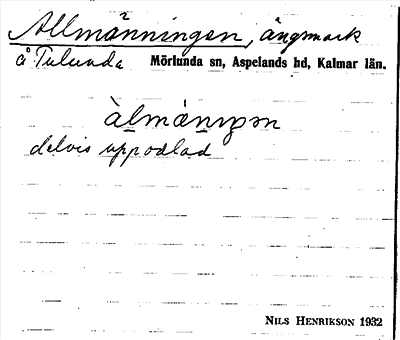 Allmänningen, ängmark
å Tulunda Mörlunda sn, Aspelands hd, Kalmar län.
àlmánıŋən
delvis uppodlad
NILS HENRIKSON 1932